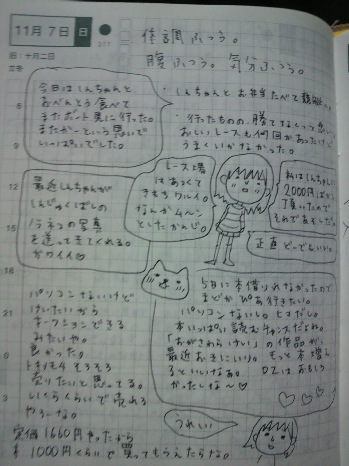 11月 7日 日
旧：十月二日
立冬
体調ふつう。
腹ふつう。気分ふつう。
今日はしんちゃんと
おべんとう食べて
またボート見に行った。
またかーという思いで
いっぱいでした。
・しんちゃんとお弁当たべて競艇
・行ったものの、勝てなくって
おしいレースも何回かあったけど
うまくいかなかった。
レース場
はあつくて
きもちワルイ。
なんかムーン
としたかんじ。
私はしんちゃんに
2000円ばか
丁頁いたので
それであそんだ。
正直どーでもいい。
最近しんちゃんが
しんじゅくばしの
ノラネコの写真
を送ってきてくれる。
カワイイ♡
6
9
12
15
18
21
0
3
パソコンないけど
けいたいから
オークションできる
みたいや。
良かった。
トモノモ4そろそろ
売りたいと思ってる。
いくらくらいで売れる
やろーな。
定価1660円やったから
1000円くらいで買ってもうえたらな。
5日に本借りれなかったので
まどかぴあ行きたい。
パソコンないし。ヒマだし。
本いっぱい読むチャンスだよね。
「おがさわらけい」の作品が
最近お気に入り。もっと本増え
るといいなぁ。DZはおもろ
かったしな～♡
うれしい